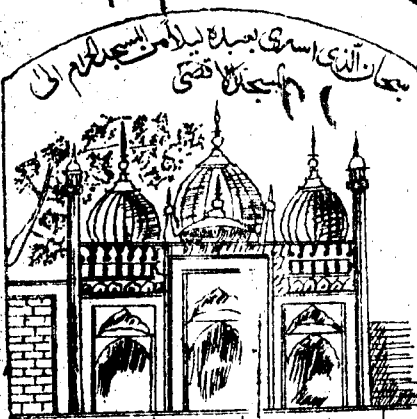 سبحان الذی اسری بعبدہ لیلاً من المسجد الحرام الیٰ
المسجد الاقصیٰ